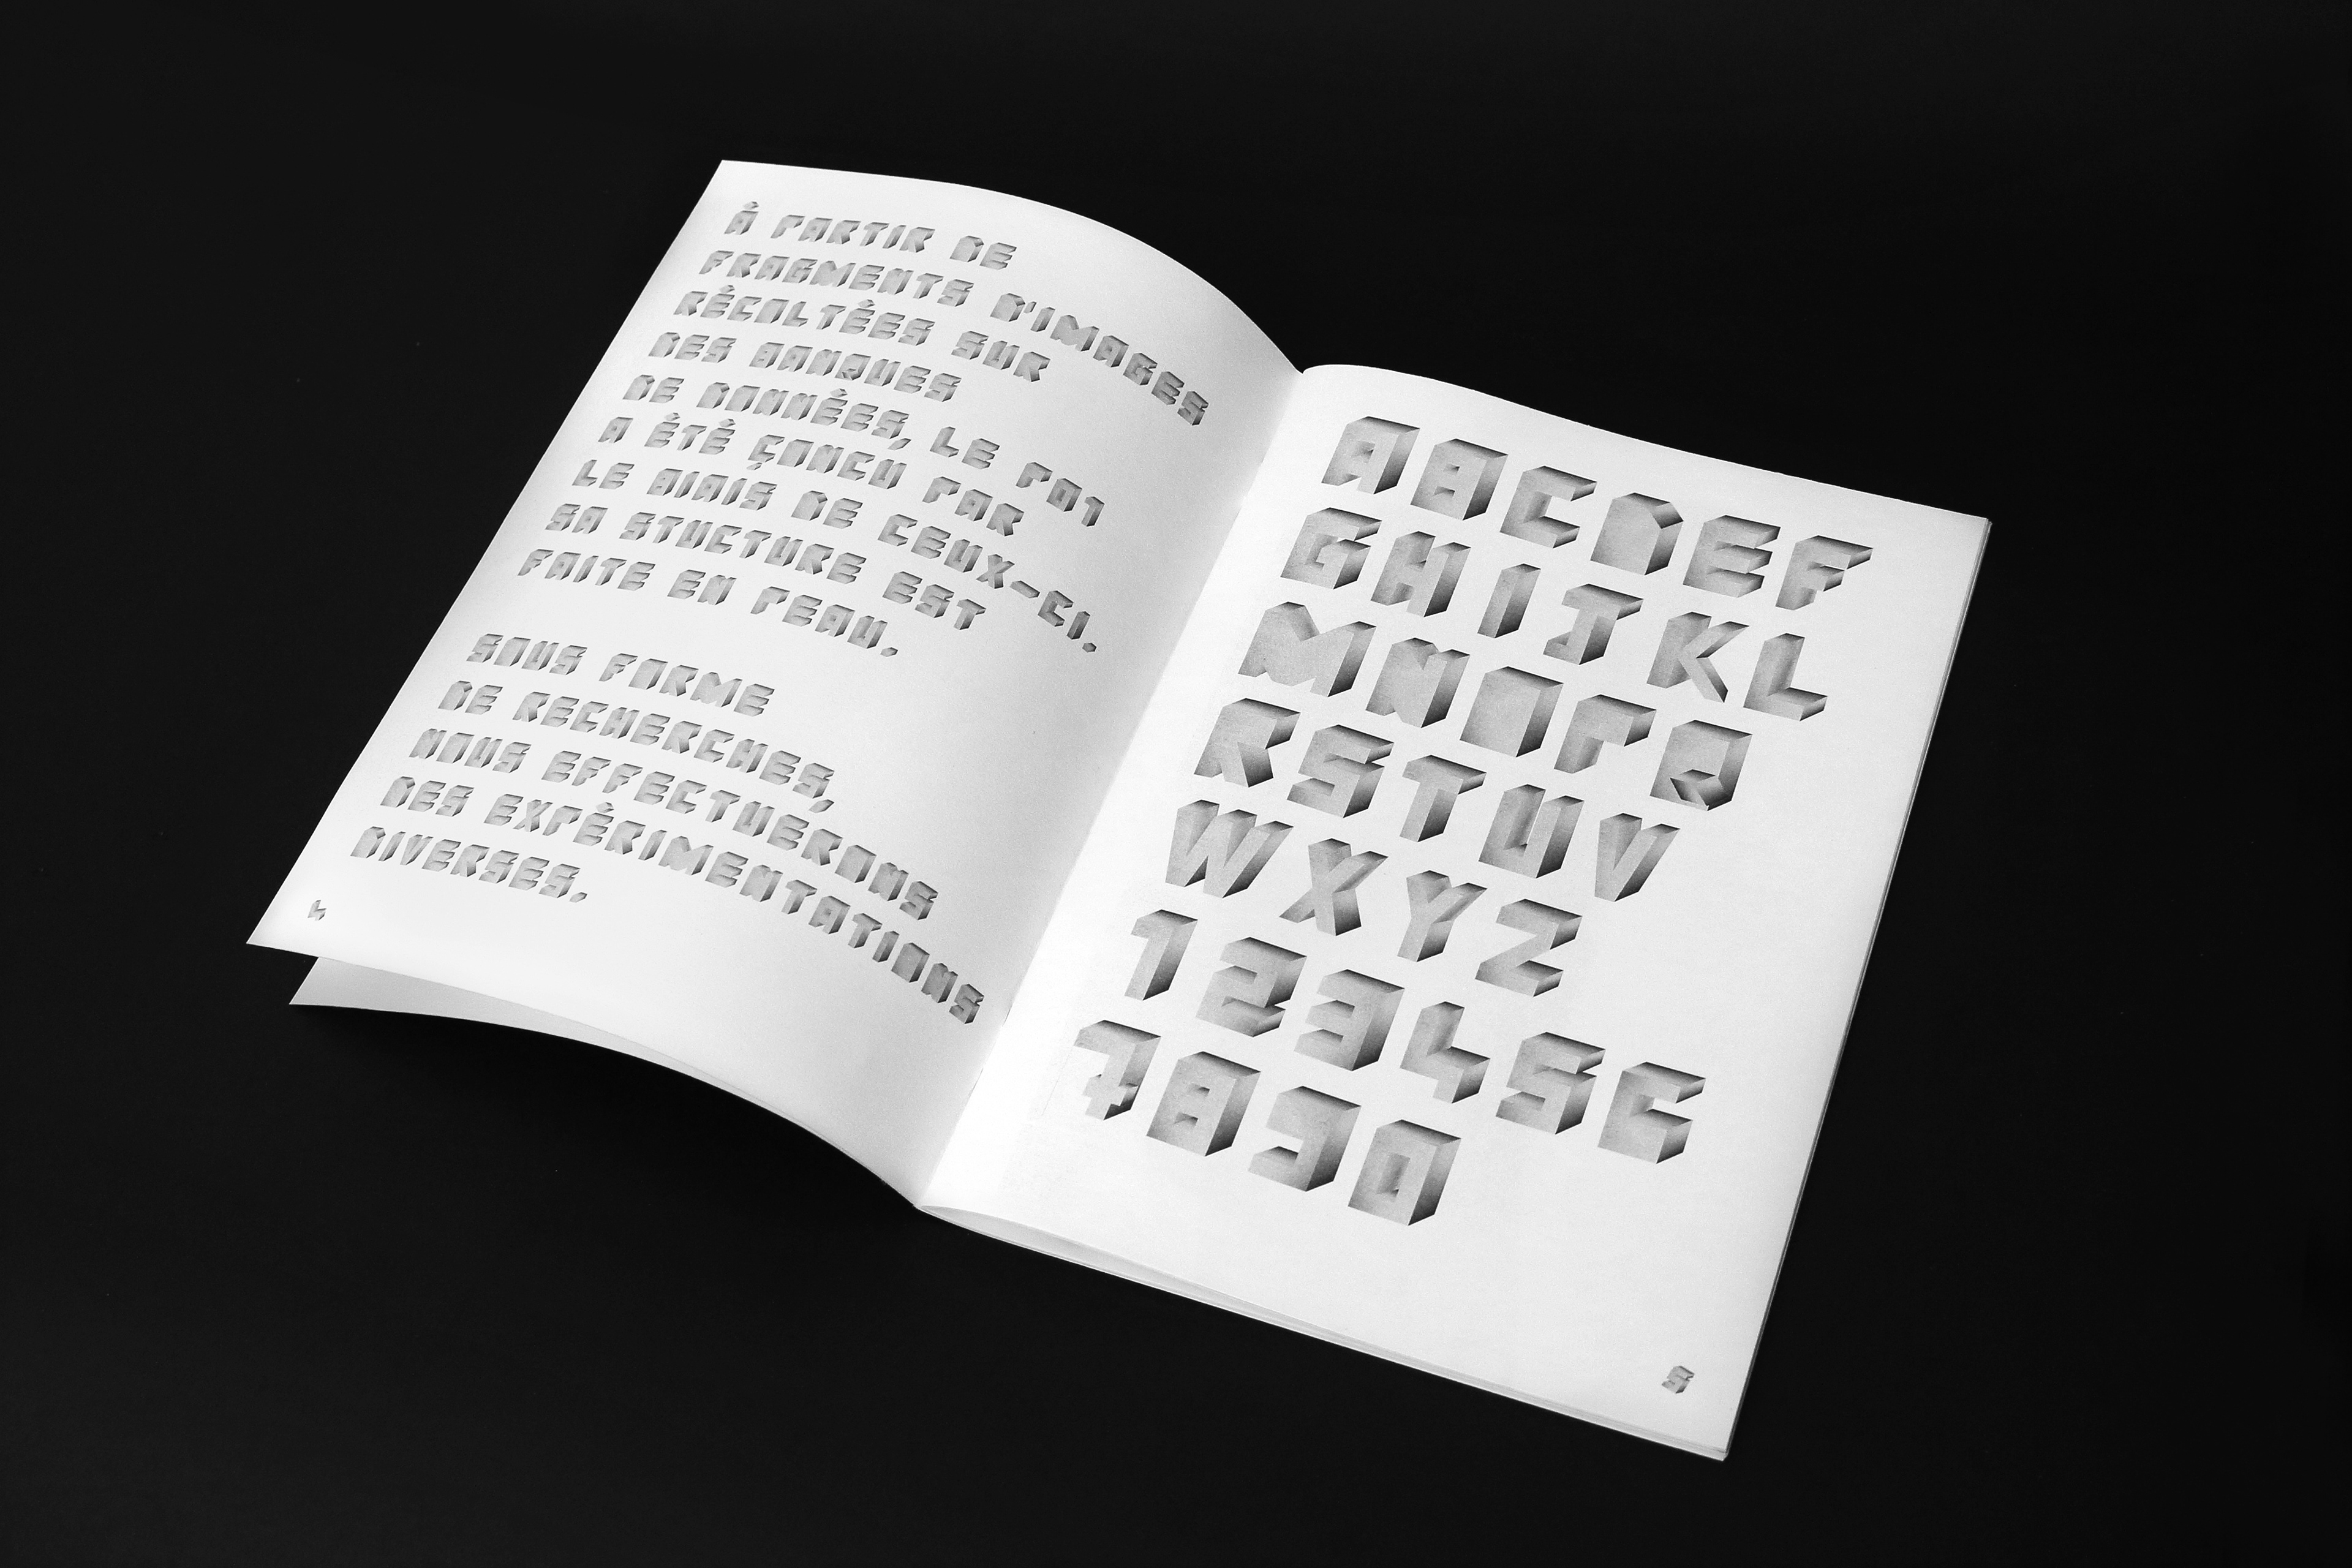 À PARTIR DE
FRAGMENTS D'IMAGES
RÉCOLTÉES SUR
DES BANQUES
DE DONNÉES, LE P01
A ÉTÉ ÇONCU PAR
LE BIAIS DE CEUX-CI.
SA STUCTURE EST
FAITE EN PEAU.
SOUS FORME
DE RECHERCHES,
NOUS EFFECTUERONS
DES EXPÉRIMENTATIONS
DIVERSES.
4
ABCDEF
GHIJKL
MNOPQ
RSTUV
WXYZ
123456
7890
5